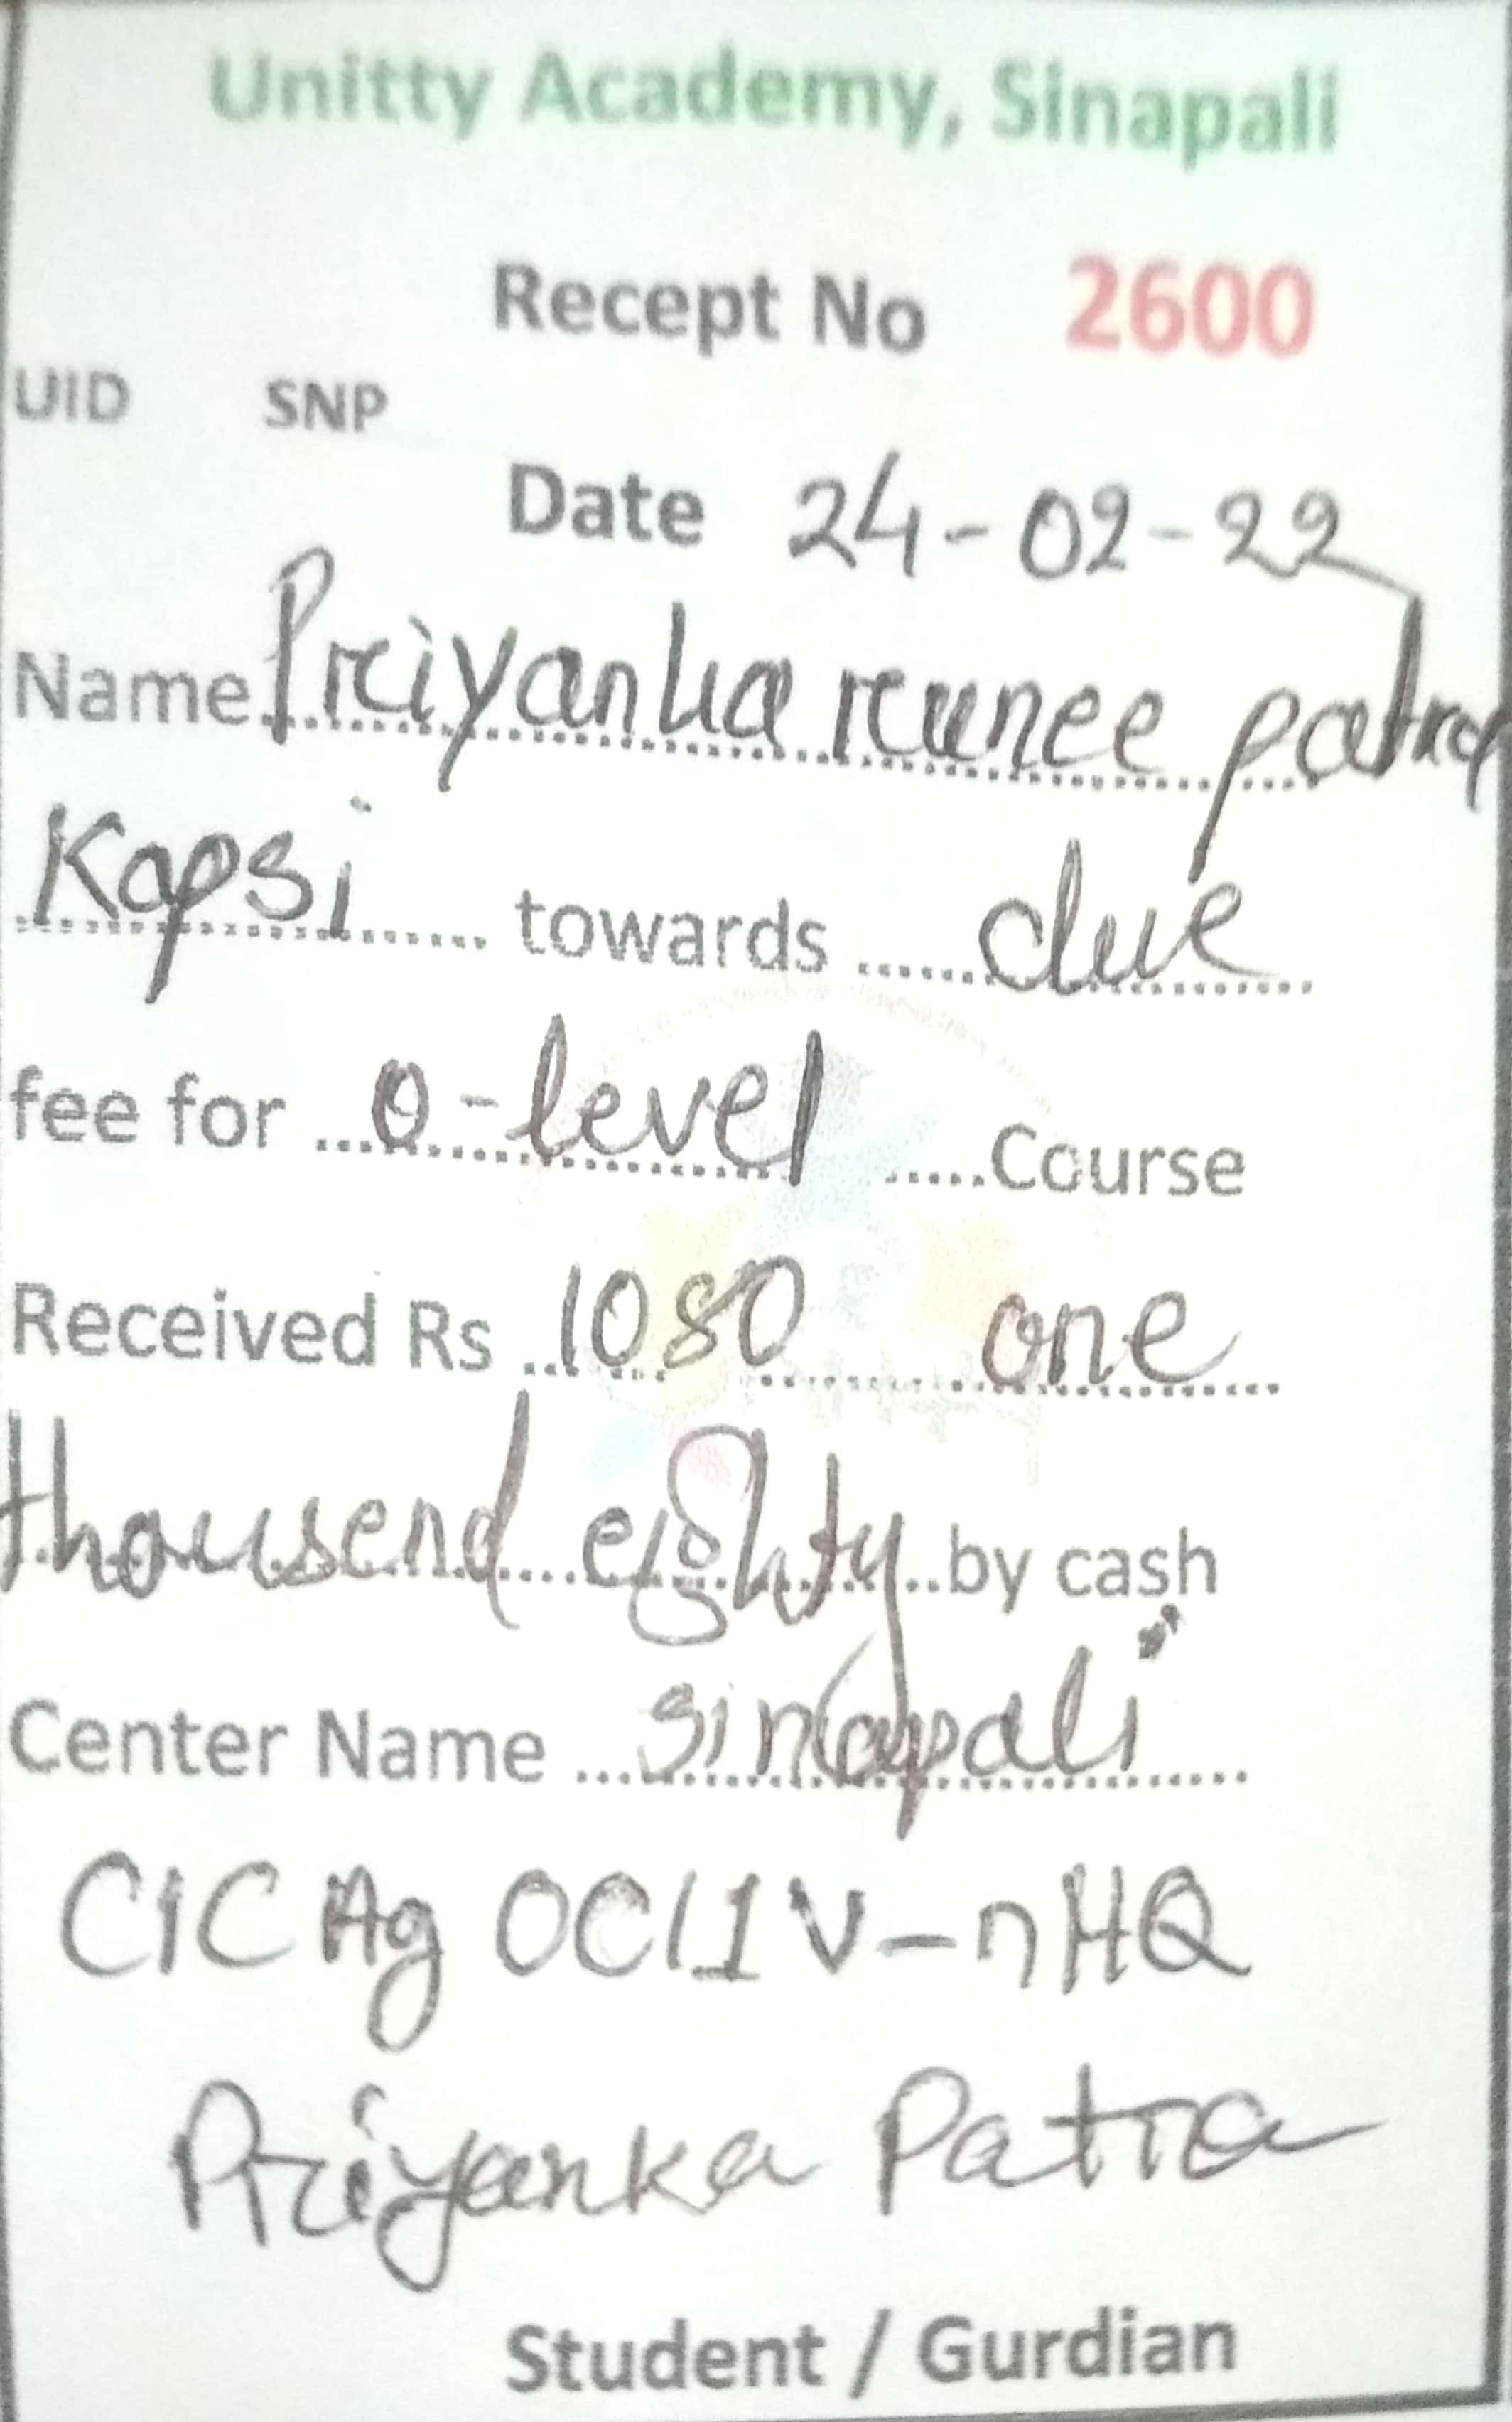 Unitty Academy, Sinapali
Recept No 2600
UID SNP
Date 24-02-22
Name Priyanka ranee patra
Kapsi towards due
fee for O-level Course
Received Rs 1080 one
thousend eighty by cash
Center Name Sinapali
CICAg OCI1V-nHQ
Priyanka Patra
Student / Gurdian